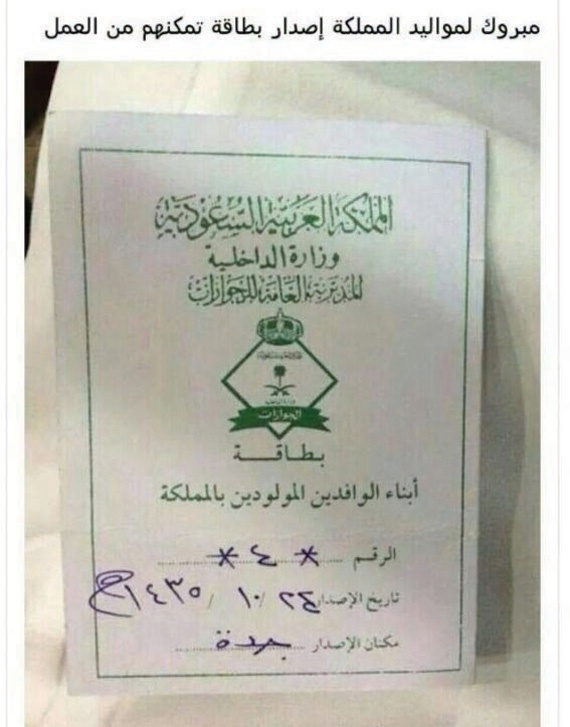 مبروك لمواليد المملكة إصدار بطاقة تمكنهم من العمل
المملكة العربية السعودية
وزارة الداخلية
المديرية العامة للجوازات
الجوازات
بطاقـــة
أبناء الوافدين المولودين بالمملكة
الرقم ..... * ٤ * .....
تاريخ الإصدار ٢٤ / ١٠ / ١٤٣٥هـ
مكان الإصدار ..... جدة .....